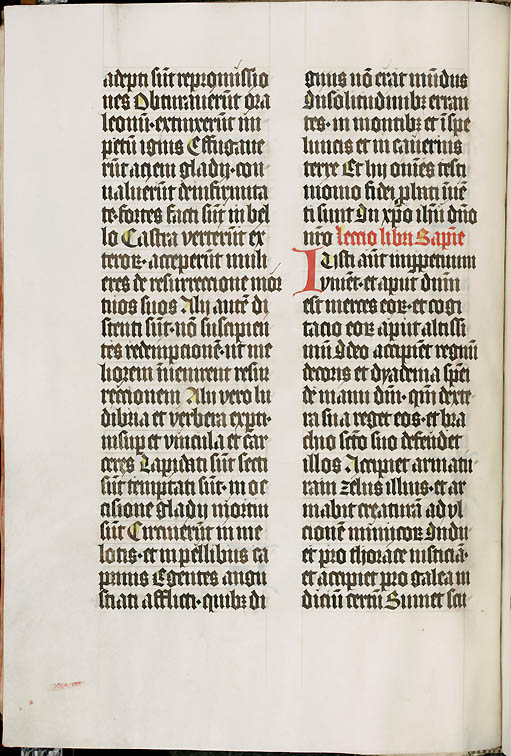 adepti sūt repromissio
nes Obturauerūt ora
leonū· extinxerūt im
petū ignis Effugaue
rūt aciem gladij· con
ualuerūt de infirmita
te· fortes facti sūt in bel
lo Castra verterūt ex
teroꝝ· acceperūt muli
eres de resurreccione mor
tuos suos Alij autē di
stenti sūt· nō suscipien
tes redempcionē· ut me
liorem īuenirent resur
rectionem Alij vero lu
dibria et verbera experti·
insuꝑ et vincula et car
ceres Lapidati sūt secti
sūt temptati sūt· in oc
cisione gladij mortui
sūt Circuierūt in me
lotis· et in pellibus ca
prinis Egentes angu
stiati afflicti· quibꝫ di
gnus nō erat mūdus
In solitudinibꝫ erran
tes· in montibꝫ et ī spe
luncis et in cauernis
terre Et hij om̄es testi
monio fidei ꝓbati īuē
ti sunt In xp̄o ih̄u dn̄o
nr̄o lectio libri Sapiē
Iusti aūt in ꝑpetuum
viuēt· et aput dnūm
est merces eoꝝ· et cogi
tacio eoꝝ aput altissi
mū Ideo accipiēt regnū
decoris et dyadema spēi
de manu dn̄i· qm̄ dexte
ra sua reget eos· et bra
chio sc̄to suo defendet
illos Accipiet armatu
ram zelus illius· et ar
mabit creaturā ad vl
cionē inimicoꝝ Indu
et pro thorace iusticiā·
et accipiet pro galea iu
diciū certū Sumet scu